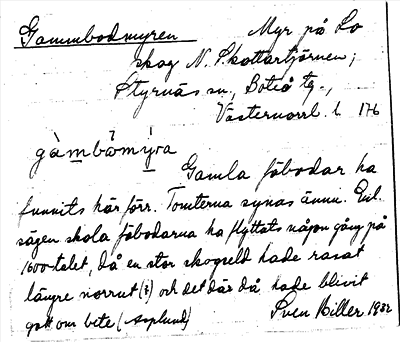 Gammbodmyren Myr på Lo
skog N. Skottartjärnen;
Styrnäs sn, Boteå tg.,
Västernorrl. l. 176
gàmbōmỳra
Gamla fäbodar ha
funnits här förr. Tomterna synas ännu. Enl.
sägen skola fäbodarna ha flyttats någon gång på
1600-talet, då en stor skogseld hade rasat
längre norrut (?) och det där då hade blivit
gott om bete (Asplund) Sven Hiller 1932